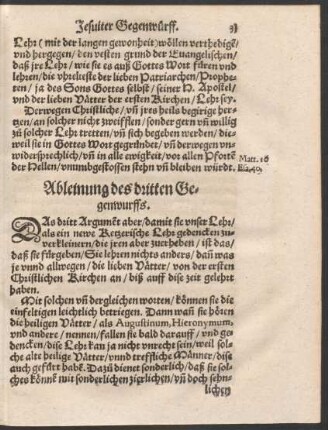 Jesuiter Gegenwürff.
Lehr (mit der langen gewonheit) wöllen verthedigē/
vnd hergegen/ den vesten grund der Euangelischen/
daß jre Lehr/ wie sie es auß Gottes Wort füren vnd
lehren/ die vhrelteste der lieben Patriarchen/ Prophe-
ten/ ja des Sons Gottes selbst/ seiner H. Apostel/
vnd der lieben Vätter der ersten Kirchen/ Lehr sey.
Derwegen Christliche/ vñ jres heils begirige her-
tzen/ an solcher nicht zweifflen/ sonder gern vñ willig
zů solcher Lehr tretten/ vñ sich begeben werden/ die-
weil sie in Gottes Wort gegründet/ vñ derwegen vn-
widersprechlich/ vñ in alle ewigkeit/ vor allen Pfortē
der Hellen/ vnumbgestossen stehn vñ bleiben würdt.
Matt. 16
Esa. 40.
Ableinung des dritten Ge-
genwurffs.
DAs dritt Argumēt aber/ damit sie vnser Lehr/
als ein newe Ketzerische Lehr gedencken zu-
verkleinern/ die jren aber zuerheben/ ist das/
daß sie fürgeben/ Sie lehren nichts anders/ dañ was
je vnnd allwegen/ die lieben Vätter/ von der ersten
Christlichen Kirchen an/ biß auff dise zeit gelehrt
haben.
Mit solchen vñ dergleichen worten/ können sie die
einfeltigen leichtlich betriegen. Dann wañ sie hören
die heiligen Vätter/ als Augustinum, Hieronymum,
vnd andere/ nennen/ fallen sie bald darauff/ vnd ge-
dencken/ dise Lehr kan ja nicht vnrecht sein/ weil sol-
che alte heilige Vätter/ vnnd treffliche Männer/ dise
auch gefürt habē. Dazů dienet sonderlich/ daß sie sol-
ches könnē mit sonderlichen zierlichen/ vñ doch sehn-
lichen